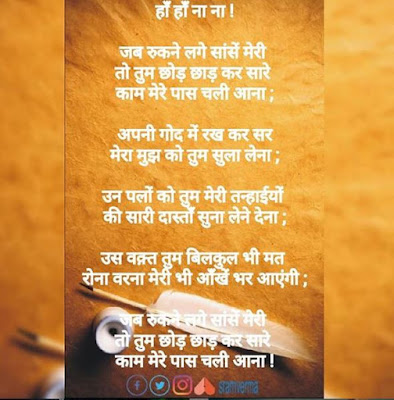 हाँ हाँ ना ना !
जब रुकने लगे सांसें मेरी
तो तुम छोड़ छाड़ कर सारे
काम मेरे पास चली आना ;
अपनी गोद में रख कर सर
मेरा मुझ को तुम सुला लेना ;
उन पलों को तुम मेरी तन्हाईयों
की सारी दास्ताँ सुना लेने देना ;
उस वक़्त तुम बिलकुल भी मत
रोना वरना मेरी भी आँखें भर आएंगी ;
जब रुकने लगे सांसें मेरी
तो तुम छोड़ छाड़ कर सारे
काम मेरे पास चली आना !
sramverma